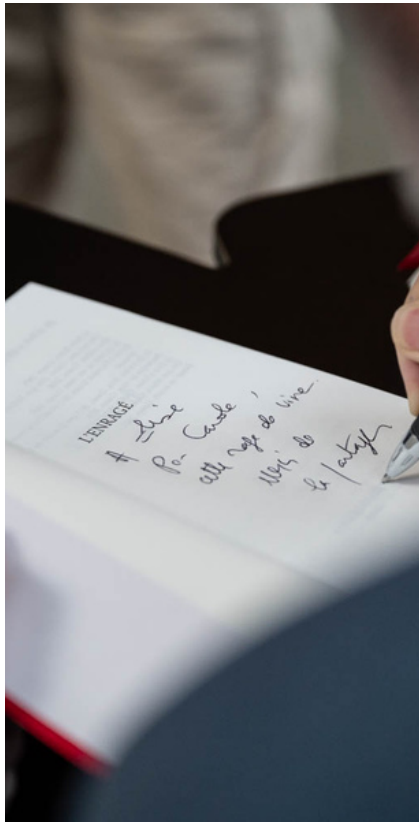 L'ENRAGÉ
A Elise
Pour Carole,
cette rage de vivre.
Merci de
la partager